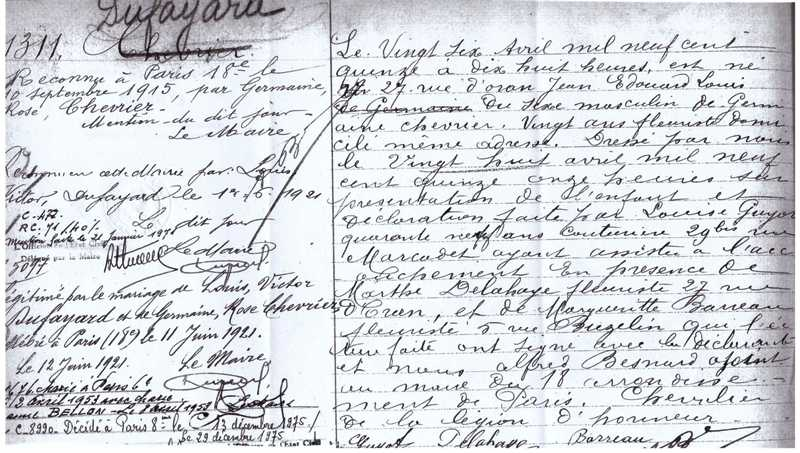 Dufayard
1311. Chevrier
Reconnu à Paris 18e le
10 septembre 1915, par Germaine,
Rose, Chevrier.
Mention du dit jour
Le Maire
Reconnu en cette Mairie par Louis
Victor, Dufayard le 1921
C. 472
R.C. 71
Mention faite le 21 Janvier 197
Le dit jour
Le Maire
l'Etat Civil
Délégué par le Maire
Légitimé par le mariage de Louis, Victor
Dufayard et de Germaine, Rose Chevrier
célébré à Paris (18e) le 11 Juin 1921.
Le 12 Juin 1921. Le Maire
Marié à Paris 6e
avril 1953 avec
BELLON Le avril 1953
C-8990 - Décédé à Paris 8me le 13 décembre 1975
Le 29 décembre 1975
l'Etat Civil
Le Vingt six Avril mil neuf cent
quinze à dix huit heures, est né
27 rue d'oran Jean Edouard Louis
de Germaine du sexe masculin de Germ
aine chevrier. Vingt ans fleuriste domi
cilié même adresse. Dressé par nous
le Vingt huit avril mil neuf
cent quinze onze heures sur
présentation de l'enfant et
déclaration faite par Louise Guyot
quarante neuf ans couturière 29 bis rue
Marcadet ayant assisté à l'acc
ouchement En présence de
Marthe Delahaye fleuriste 27 rue
d'Oran, et de Marguerite Barreau
fleuriste 5 rue que l'ec
ture faite ont signé avec la déclarant
et nous alfred Besnard adjoint
au maire du 18 arrondisse-
ment de Paris. Chevalier
de la légion d'honneur
Guyot Delahaye Barreau